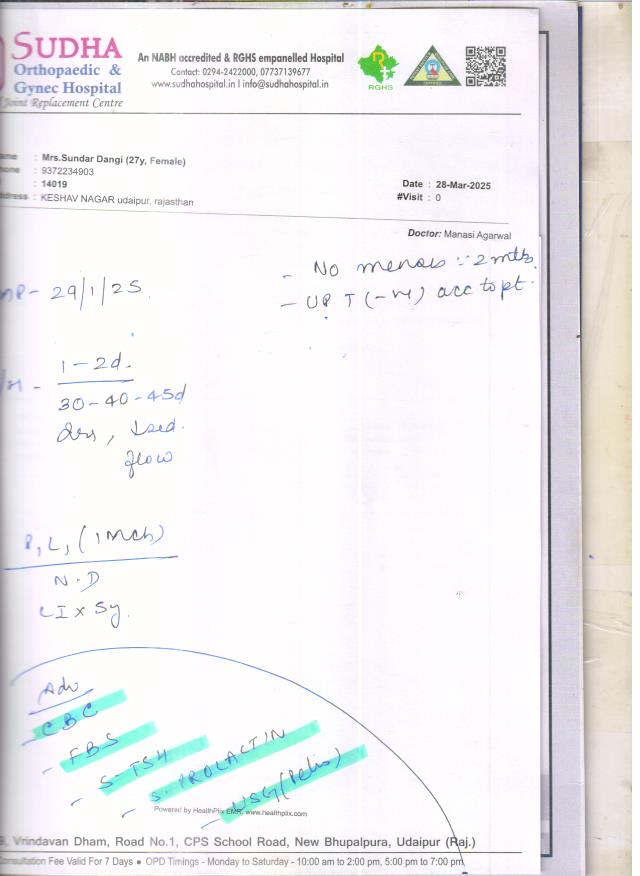 SUDHA
Orthopaedic &
Gynec Hospital
Joint Replacement Centre
An NABH accredited & RGHS empanelled Hospital
Contact: 0294-2422000, 07737139677
www.sudhahospital.in | info@sudhahospital.in
RGHS
: Mrs.Sundar Dangi (27y, Female)
: 9372234903
: 14019
: KESHAV NAGAR udaipur, rajasthan
Date : 28-Mar-2025
#Visit : 0
Doctor: Manasi Agarwal
- No menses :: 2 mths.
- UPT (-ve) acc to pt.
MP - 29/1/25
1-2d.
30-40-45d
flow
P1L1 (1 Mch)
N.D
LI x 5y.
Adv
- CBC
- FBS
- S-TSH
- S-PROLACTIN
- USG (Pelvis)
Powered by HealthPlix EMR. www.healthplix.com
9, Vrindavan Dham, Road No.1, CPS School Road, New Bhupalpura, Udaipur (Raj.)
Consultation Fee Valid For 7 Days ● OPD Timings - Monday to Saturday - 10:00 am to 2:00 pm, 5:00 pm to 7:00 pm